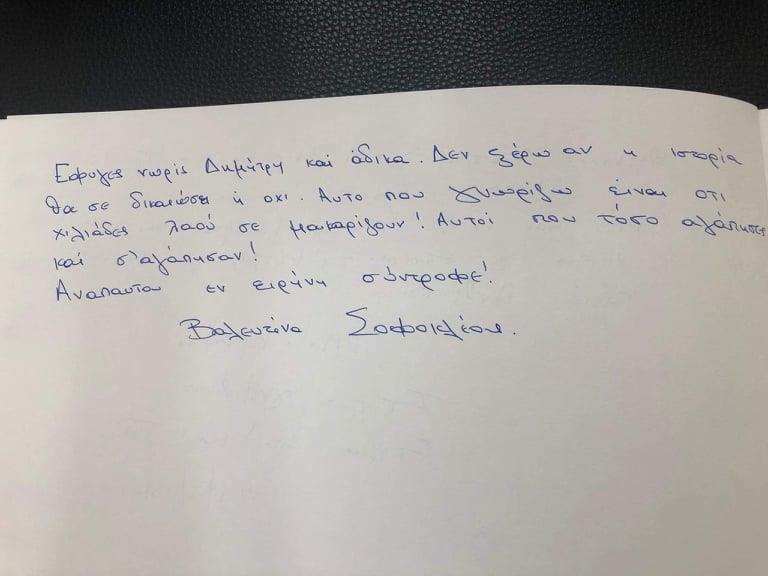 Εφυγες νωρίς Δημήτρη και άδικα. Δεν ξέρω αν η ιστορία
θα σε δικαιώσει ή οχι. Αυτο που γνωρίζω είναι οτι
χιλιάδες λαού σε μακαρίζουν! Αυτοί που τόσο αγάπησες
και σ'αγάπησαν!
Αναπαυτου εν ειρήνη σύντροφε!
Βαλεντίνα Σοφοκλέους.